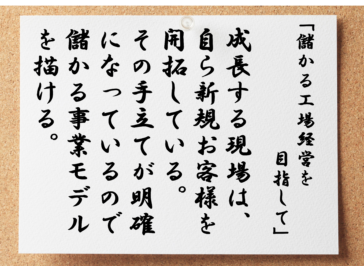 「儲かる工場経営を
目指して」
成長する現場は、
自ら新規お客様を
開拓している。
その手立てが明確
になっているので
儲かる事業モデル
を描ける。